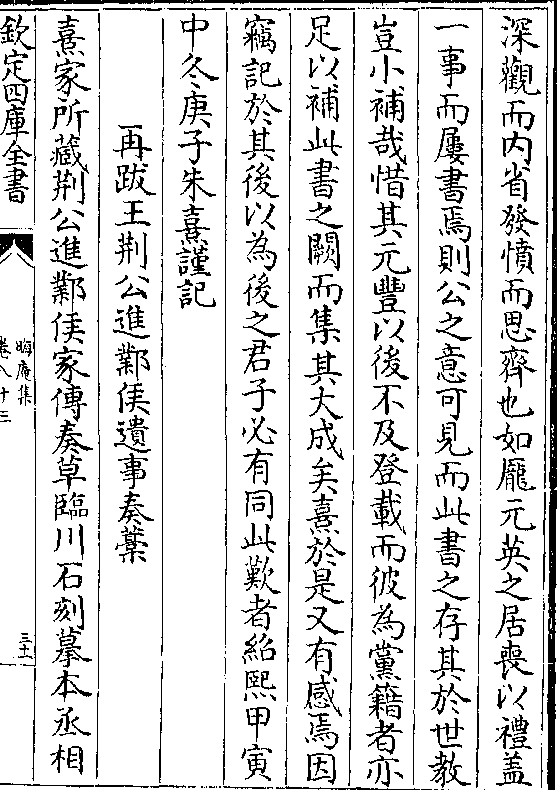 深觀而内省發憤而思齊也如龎元英之居喪以禮盖
一事而屢書焉則公之意可見而此書之存其於世教
豈小補哉惜其元豐以後不及登載而彼為黨籍者亦
足以補此書之闕而集其大成矣熹於是又有感焉因
竊記於其後以為後之君子必有同此歎者紹熙甲寅
中冬庚子朱熹謹記
再跋王荆公進鄴侯遺事奏藁
熹家所藏荆公進鄴侯家傳奏草臨川石刻摹本丞相
欽定四庫全書
晦庵集
卷八十三
三十一